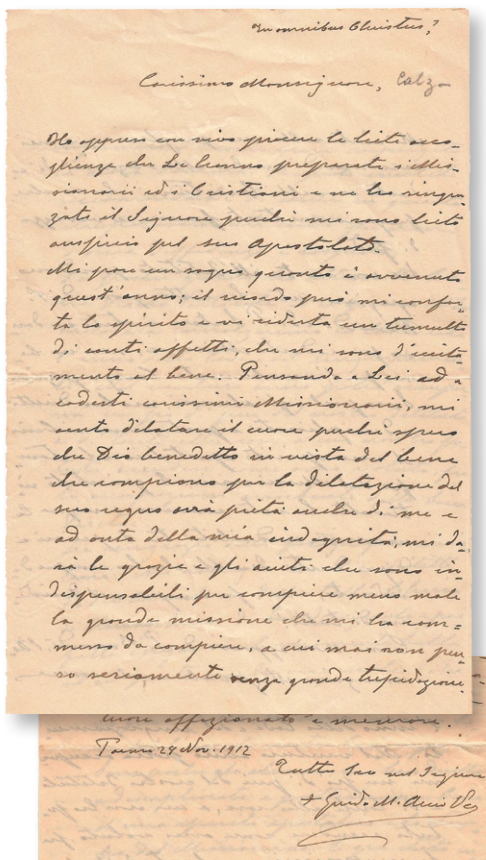 In omnibus Christus!
Carissimo Monsignore, Calza
Ho appreso con vivo piacere le liete acco-
glienze che Le hanno preparate i Mis-
sionarii ed i Cristiani e ne ho ringra-
ziato il Signore perchè mi sono lieto
auspicio pel suo Apostolato.
Mi pare un sogno quanto è avvenuto
quest'anno; il ricordo però mi confor-
ta lo spirito e vi ridesta un tumulto
di santi affetti, che mi sono d'incita-
mento al bene. Pensando a Lei ad a
codesti carissimi Missionarii, mi
sento dilatare il cuore perchè spero
che Dio benedetto in vista del bene
che compiono per la dilatazione del
suo regno avrà pietà anche di me e
ad onta della mia indegnità, mi da-
rà le grazie e gli aiuti che sono in-
dispensabili per compiere meno male
la grande missione che mi ha com-
messo da compiere, a cui mai non pen-
so seriamente senza grande trepidazione.
cuore affezionato e memore.
Parma 24 Nov. 1912
Tutto Suo nel Signore
+ Guido M. Arciv. Ves